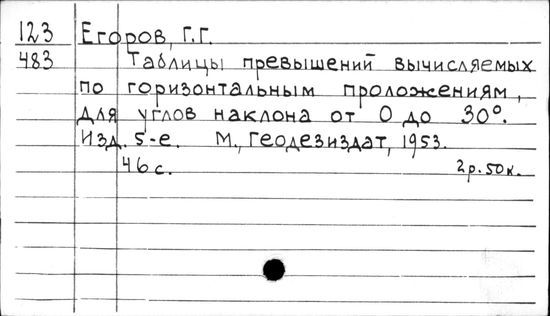 123 Егоров, Г.Г.
483 Таблицы превышений вычисляемых
по горизонтальным проложениям,
для углов наклона от 0 до 30°.
Изд. 5-е. М., Геодезиздат, 1953.
46 с. 2 р. 50 к.